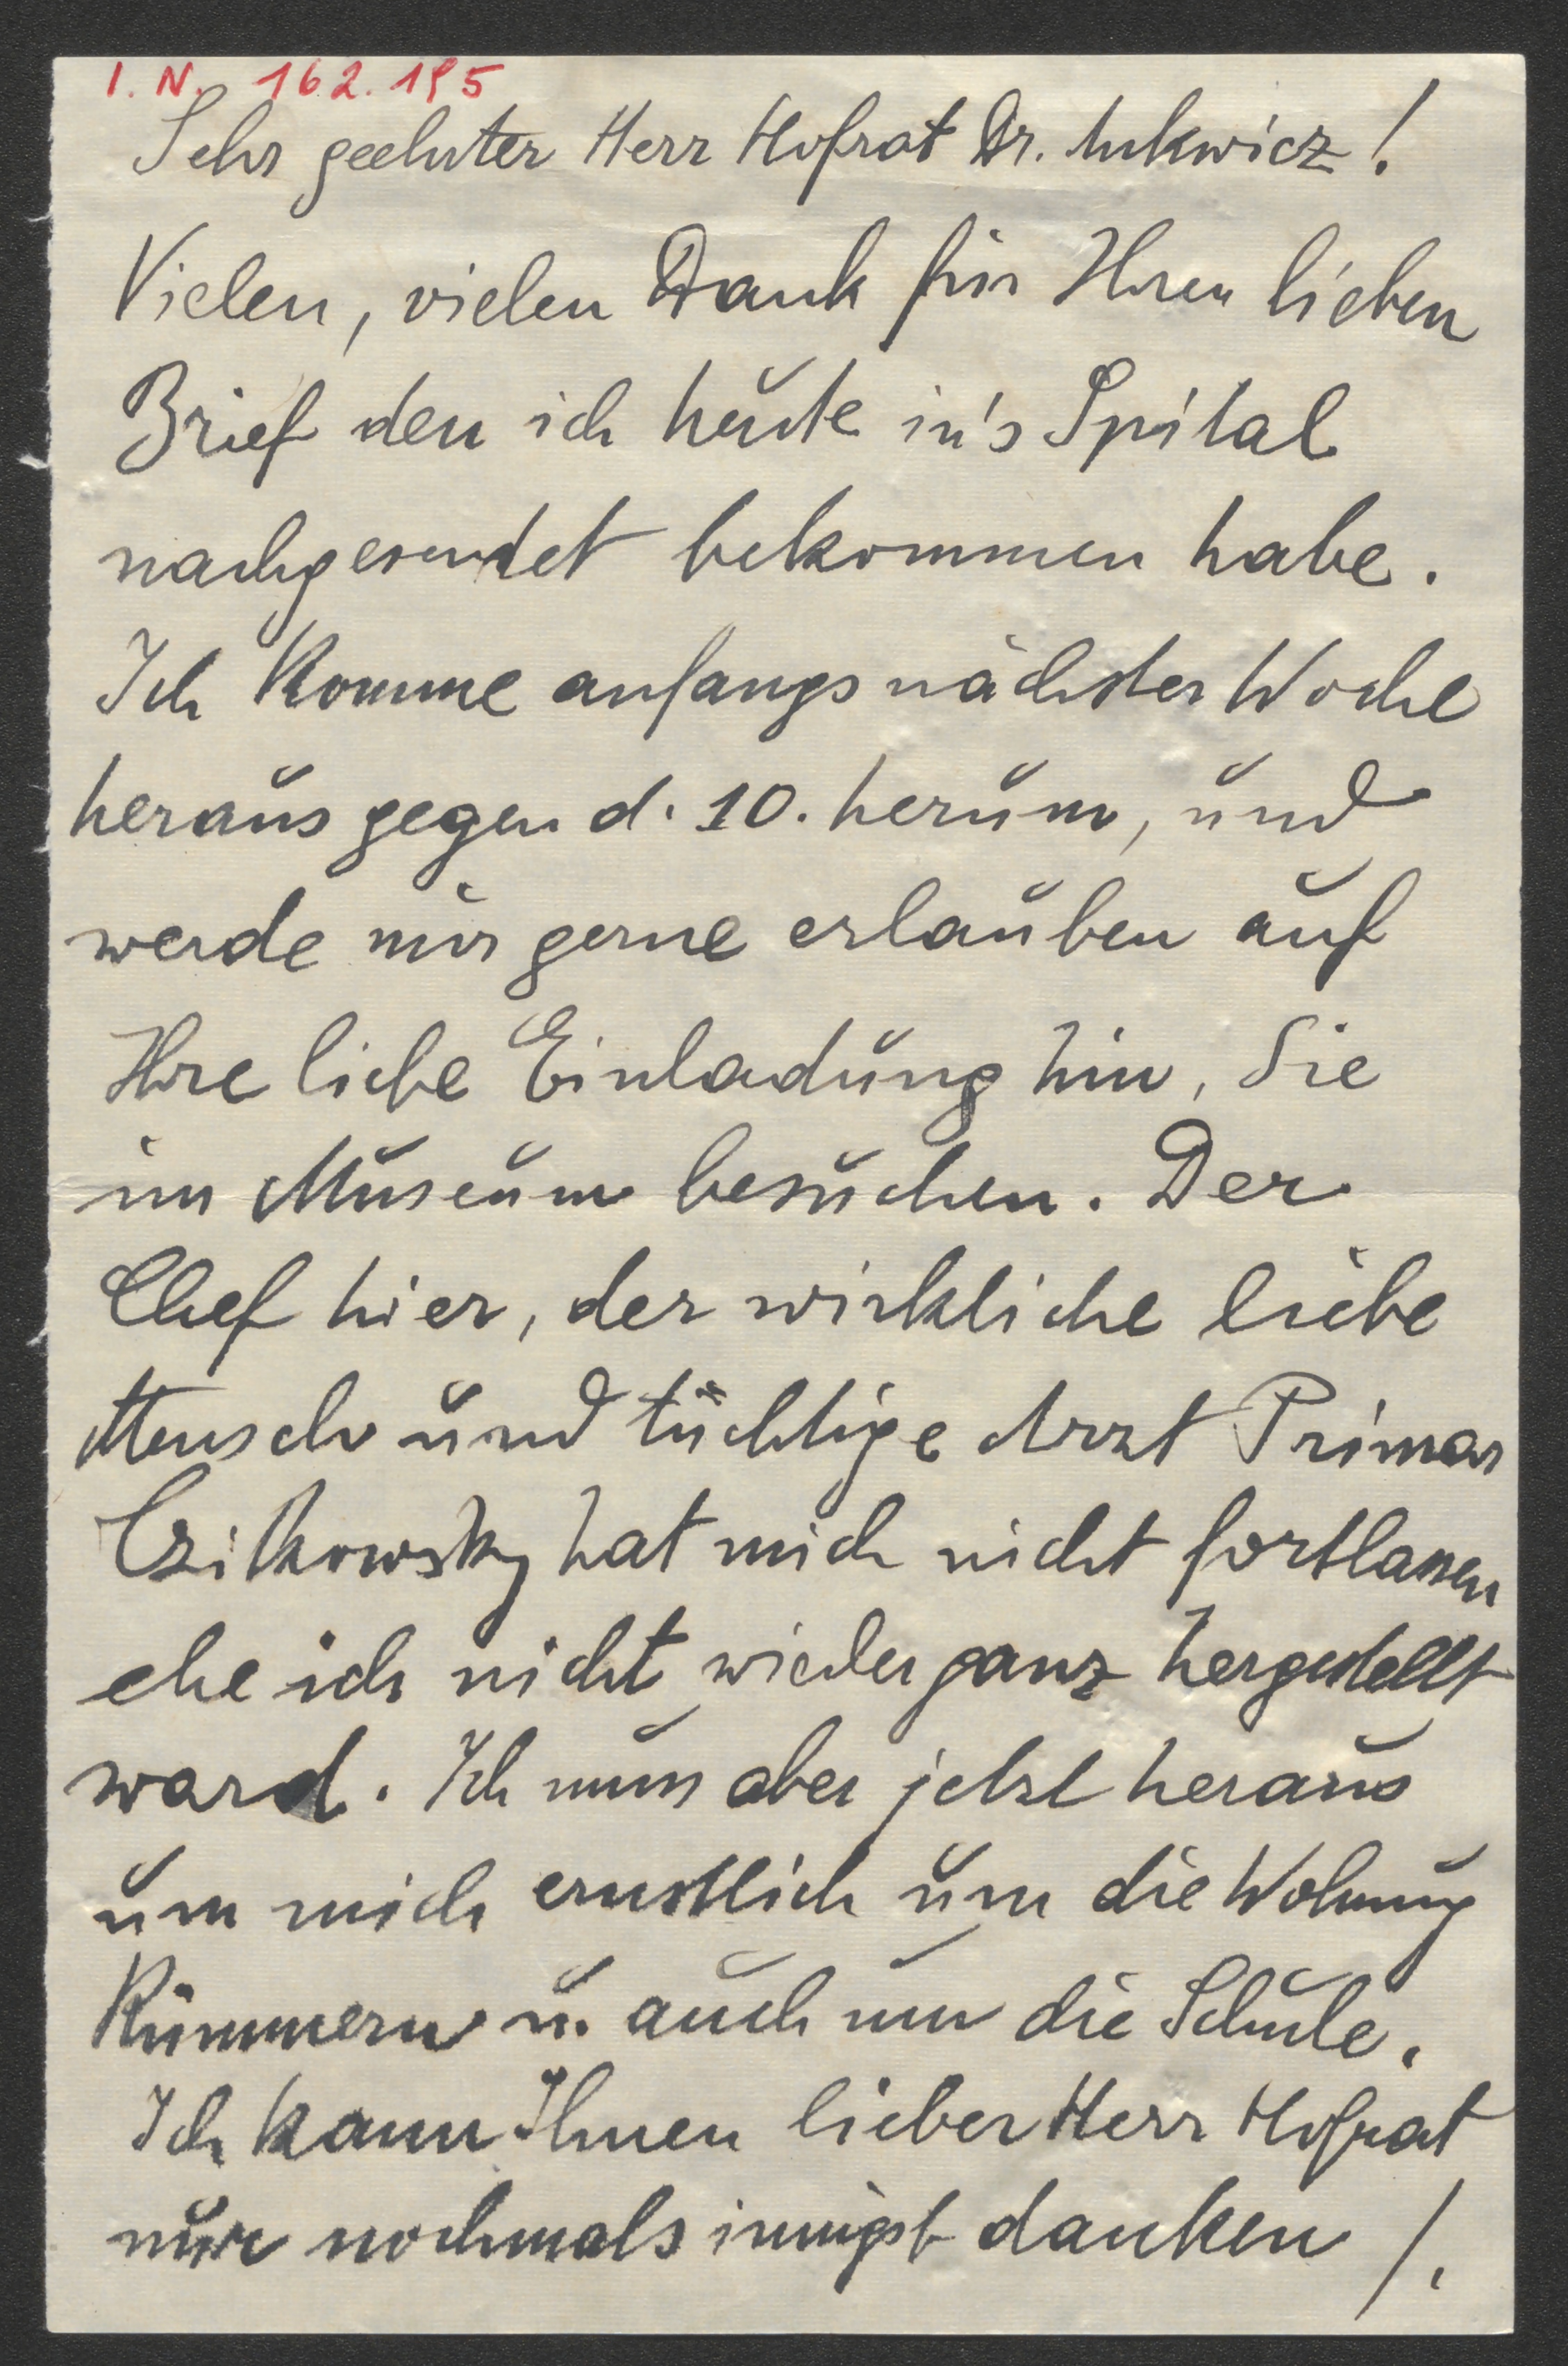 I. N. 162.195
Sehr geehrter Herr Hofrat Dr.
Vielen, vielen Dank für Ihren lieben
Brief den ich heute in's Spital
nachgesendet bekommen habe.
Ich komme anfangs nächster Woche
heraus gegen d. 10. herum, und
werde mir gerne erlauben auf
Ihre liebe Einladung hin, Sie
im Museum besuchen. Der
Chef hier, der wirkliche liebe
Mensch und tüchtige Arzt Primar
Czitkowsky hat mich nicht fortlassen
ehe ich nicht wieder ganz hergestellt
ward. Ich muss aber jetzt heraus
um mich ernstlich um die Wohnung
kümmern u. auch um die Schule.
Ich kann Ihnen lieber Herr Hofrat
nur nochmals innigst danken /.